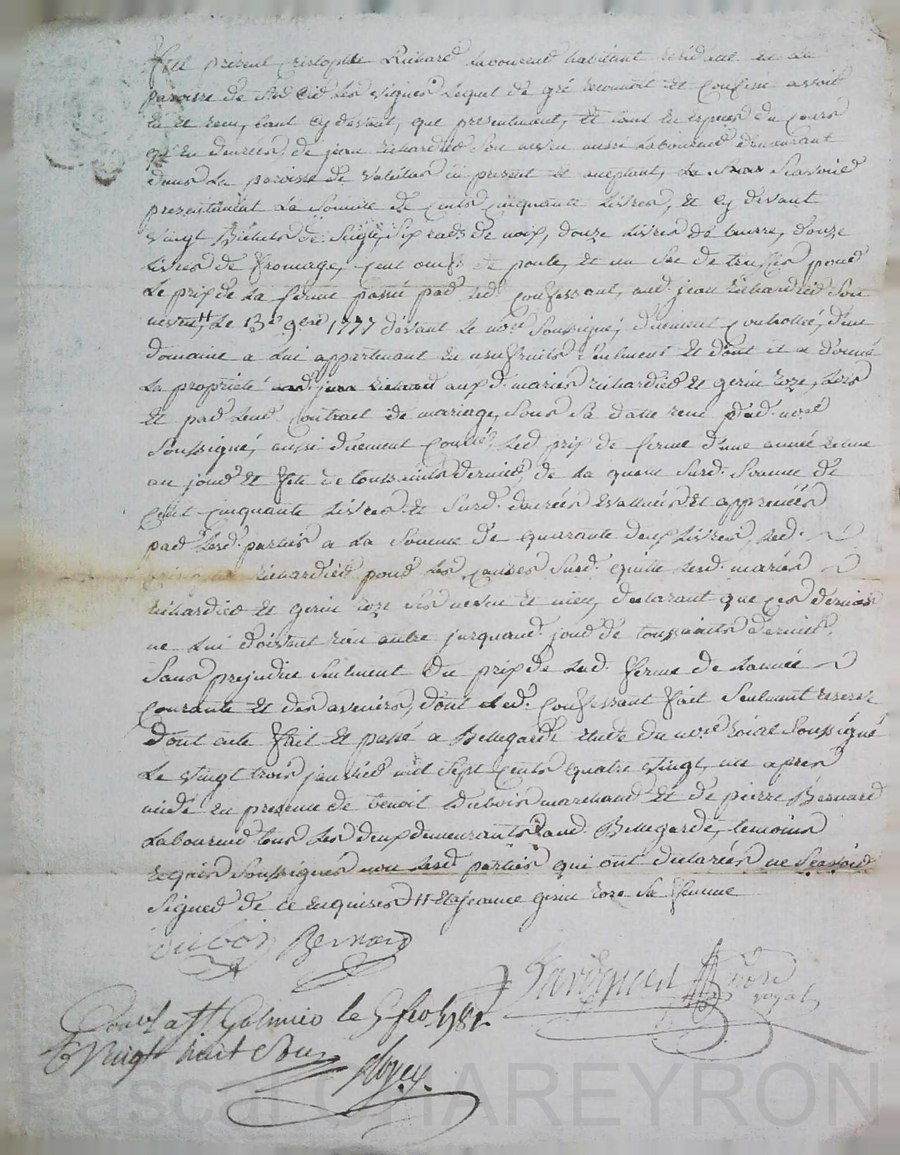 Fut présent Cristophle Richard laboureur habitant résidant en la
paroisse de St Cir les Vignes lequel de gré reconnoit et confesse avoir
eu et recu, tant cy devant, que presentement, et tout en especes du cours
qu'en denrees de jean Richardier son neveu aussi laboureur demeurant
dans la paroisse de Valeilas ici present et aceptant,
presentement la somme de cents cinquante livres, et cy devant
vingt Bichets de seigle, six de noix, douze livres de beurre, douze
livres de fromage, cent oeufs de poule, et un sac de pour
le prix de la ferme passé par led. confessant, aud. jean Richardier son
neveu H, le 13e 9bre 1777 devant le nore soussigné, duement controllé, d'un
domaine a lui appartenant en usufruits seulment et dont il a donné
la propriété auxd. mariés Richardier et gerin roze, lors
et par leur contrait de mariage, sous sa datte recu par led. nore
soussigné, aussi duement conllé, led. prix de ferme d'une année echue
au jour et fete de toussaints dernier, de la quele susd. somme de
cent cinquante livres et susd. danrées evalluées et apprecieés
par lesd. parties a la somme de quarante deux livres, led.
Richardier pour les causes susd. quitte lesd. mariés
Richardier et gerin roze ses neveu et niece, declarant que ces derniers
ne lui doivent rien autre jusquaud. jour de toussaints dernier,
sans prejudice seulment du prix de lad. ferme de l'année
courante et des avenirs, dont led. confessant fait seulment reserve
dont acte fait et passé a Bellegarde etude du nore roial soussigné
le vingt trois janvier mil sept cents quatre vingt un apres
midi en presence de benoit Dubois marchand et de pierre Bernard
laboureur tous les deux demeurants aud. Bellegarde, temoins
requis soussignés non lesd. parties qui ont déclarées ne scavoir
signer de ce enquises H et a jeanne gerin roze sa femme
dubois Bernard
nore
royal
Conllé a St Galmier le 5 1781.
R Vingt huit Sous